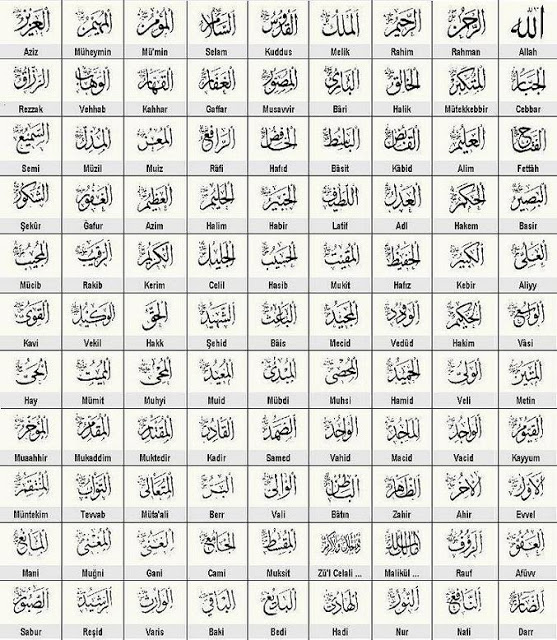 الله الرحمن الرحيم الملك القدوس السلام المؤمن المهيمن العزيز
Aziz Müheymin Mü'min Selam Kuddus Melik Rahim Rahman Allah
الجبار المتكبر الخالق البارئ المصور الغفار القهار الوهاب الرزاق
Rezzak Vahhab Kahhar Gaffar Musavvir Bâri Halik Mütekkebbir Cebbar
الفتاح العليم القابض الباسط الخافض الرافع المعز المذل السميع
Semi Müzil Muiz Râfi Hafıd Bâsit Kâbid Alim Fettâh
البصير الحكم العدل اللطيف الخبير الحليم العظيم الغفور الشكور
Şekûr Gafur Azim Halim Habir Latif Adl Hakem Basir
العلي الكبير الحفيظ المقيت الحسيب الجليل الكريم الرقيب المجيب
Mücib Rakib Kerim Celil Hasib Mukit Hafız Kebir Aliyy
الواسع الحكيم الودود المجيد الباعث الشهيد الحق الوكيل القوي
Kavi Vekil Hakk Şehid Bâis Mecid Vedüd Hakim Vâsi
المتين الولي الحميد المحصي المبدئ المعيد المحيي المميت الحي
Hay Mümit Muhyi Muid Mübdi Muhsi Hamid Veli Metin
القيوم الواجد الماجد الواحد الصمد القادر المقتدر المقدم المؤخر
Muaahhir Mukaddim Muktedir Kadir Samed Vahid Macid Vacid Kayyum
الأول الآخر الظاهر الباطن الوالي البر المتعالي التواب المنتقم
Müntekim Tevvab Müta'ali Berr Vali Bâtın Zahir Ahir Evvel
العفو الرؤف مالك الملك ذو الجلال والإكرام المقسط الجامع الغني المغني المانع
Mani Muğni Gani Cami Muksit Zü'l Celali ... Malikül ... Rauf Afüvv
الضار النافع النور الهادي البديع الباقي الوارث الرشيد الصبور
Sabur Reşid Varis Baki Bedi Hadi Nur Nafi Darr